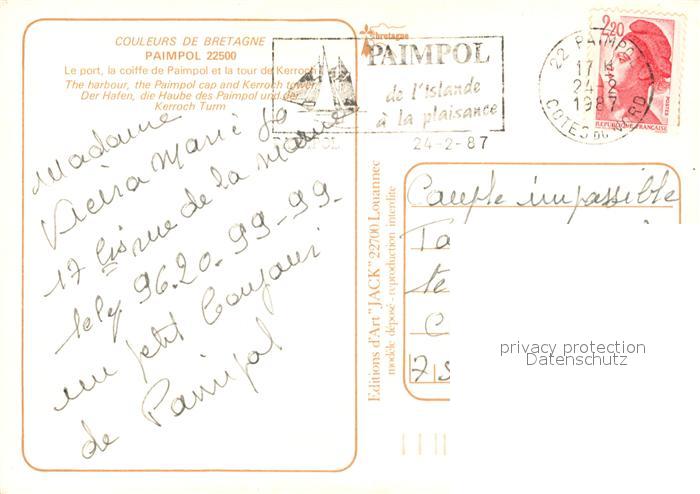 COULEURS DE BRETAGNE
PAIMPOL 22500
Le port, la coiffe de Paimpol et la tour de Kerroch
The harbour, the Paimpol cap and Kerroch tower
Der Hafen, die Haube des Paimpol und der
Kerroch Turm
bretagne
PAIMPOL
de l'Islande
à la plaisance
24-2-87
22 PAIMPOL
17 H
24-2
1987
COTES DU NORD
2,20
POSTES
REPUBLIQUE FRANÇAISE
Madame
Marie
17 bis rue de la Marne
96.20.99.99.
un petit
de Paimpol
Editions d'Art "JACK" 22700 Louannec
modèle déposé - reproduction interdite
Couple impassible
Ta
te
C
7
privacy protection
Datenschutz